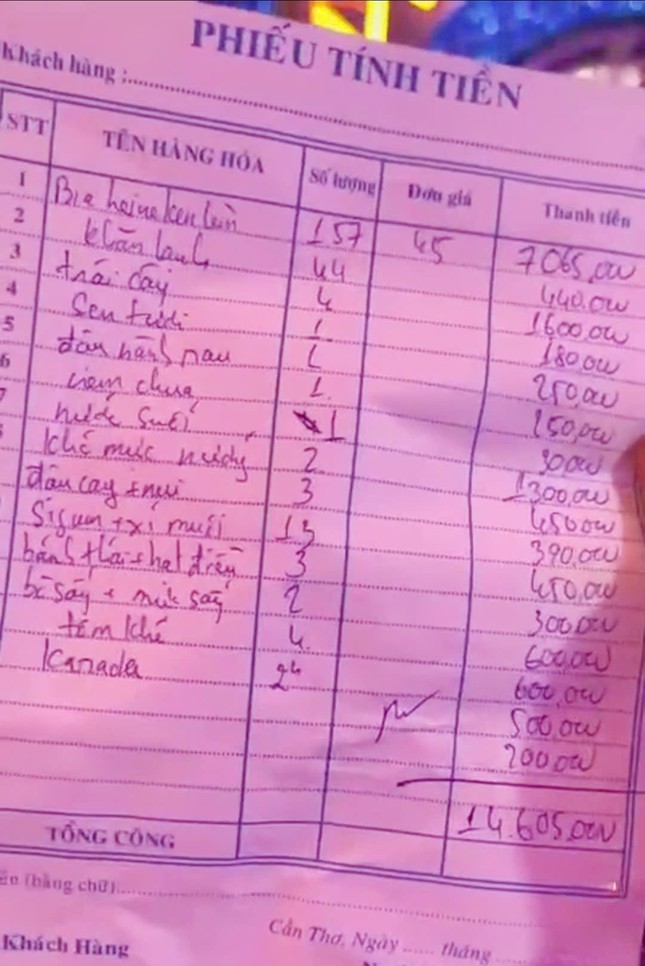 PHIẾU TÍNH TIỀN
Khách hàng :
STT TÊN HÀNG HÓA Số lượng Đơn giá Thanh tiền
1 Bia heineken lùn 157 45 7065,000
2 khăn lạnh 44 440,000
3 trái cây 4 1600,000
4 Sen tươi 1 180,000
5 đậu hành nau 1 250,000
6 nem chua 1 250,000
nước suối 1 30,000
Khô mực nướng 2 1300,000
đậu cay + nui 3 450,000
Sigum + xí muối 13 390,000
bánh thái + hạt điều 3 450,000
bò sấy + mít sấy 2 300,000
tôm khô 4 600,000
Kanada 24 600,000
500,000
200,000
14.605,000
TỔNG CỘNG
(bằng chữ)
Cần Thơ, Ngày ...... tháng
Khách Hàng